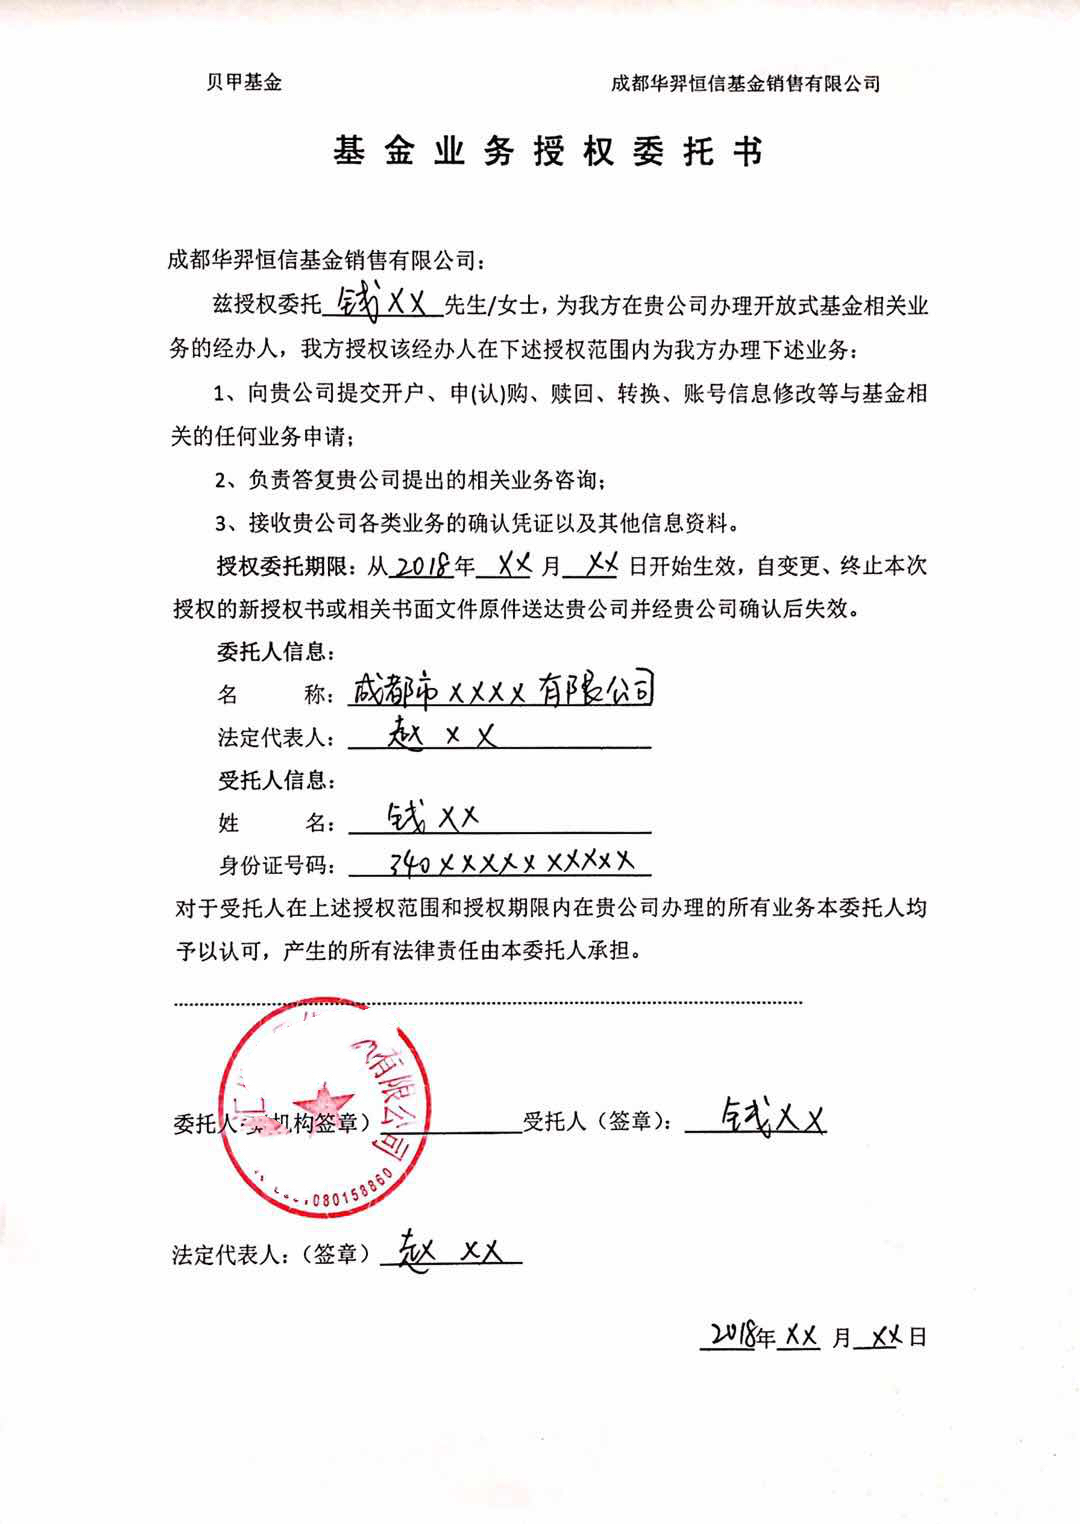 贝甲基金 成都华羿恒信基金销售有限公司
基金业务授权委托书
成都华羿恒信基金销售有限公司：
兹授权委托 钱XX 先生/女士，为我方在贵公司办理开放式基金相关业
务的经办人，我方授权该经办人在下述授权范围内为我方办理下述业务：
1、向贵公司提交开户、申(认)购、赎回、转换、账号信息修改等与基金相
关的任何业务申请；
2、负责答复贵公司提出的相关业务咨询；
3、接收贵公司各类业务的确认凭证以及其他信息资料。
授权委托期限：从2018年 XX 月 XX 日开始生效，自变更、终止本次
授权的新授权书或相关书面文件原件送达贵公司并经贵公司确认后失效。
委托人信息：
名 称：成都市XXXX有限公司
法定代表人： 赵XX
受托人信息：
姓 名： 钱XX
身份证号码： 340XXXXXXXXXX
对于受托人在上述授权范围和授权期限内在贵公司办理的所有业务本委托人均
予以认可，产生的所有法律责任由本委托人承担。
有限公司
委托人 机构签章） 受托人（签章）： 钱XX
080158860
法定代表人：（签章） 赵XX
2018年 XX 月 XX 日